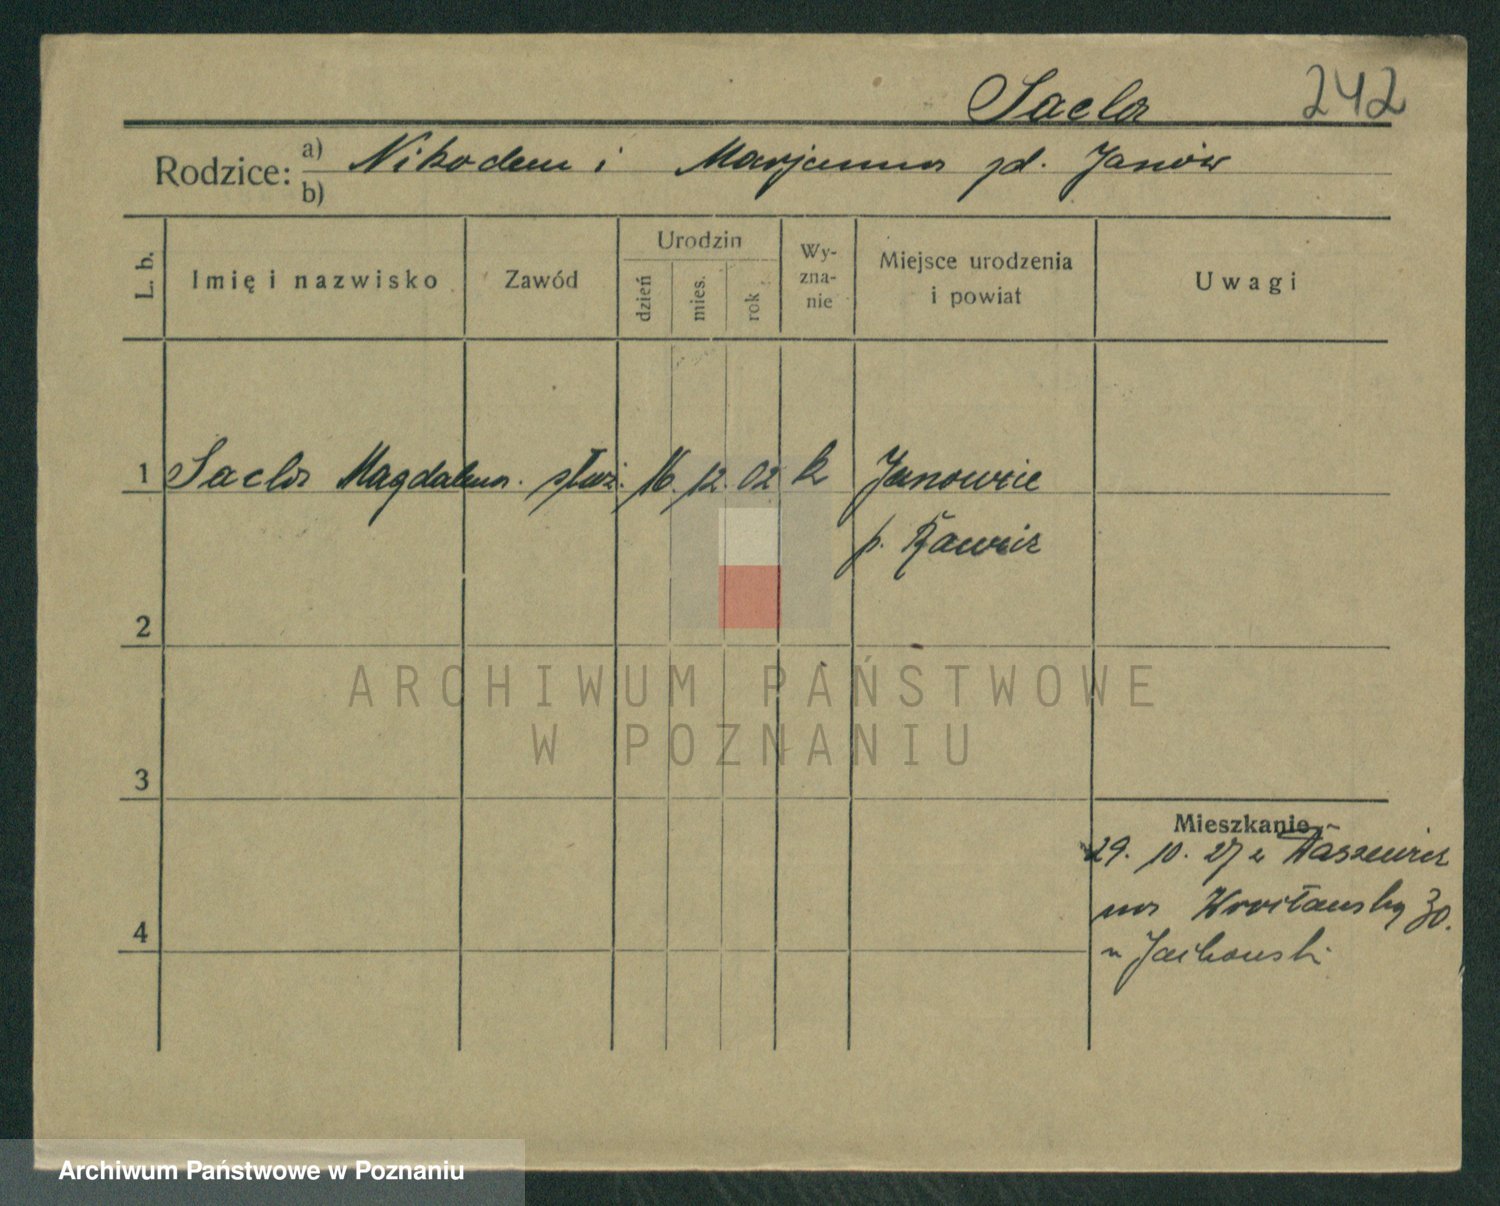 Sacla 242
Rodzice: a) Nikodem i Marjanna zd. Janów
b)
L. b. Imię i nazwisko Zawód Urodzin dzień mies. rok Wy-zna-nie Miejsce urodzenia i powiat Uwagi
1 Sacla Magdalena. służ. 16. 12. 02 k Janowice
p. Rawicz
2
ARCHIWUM PAŃSTWOWE
W POZNANIU
3
Mieszkanie
29. 10. 27 z
na Wrocławską 30.
u Jackowski
4
Archiwum Państwowe w Poznaniu